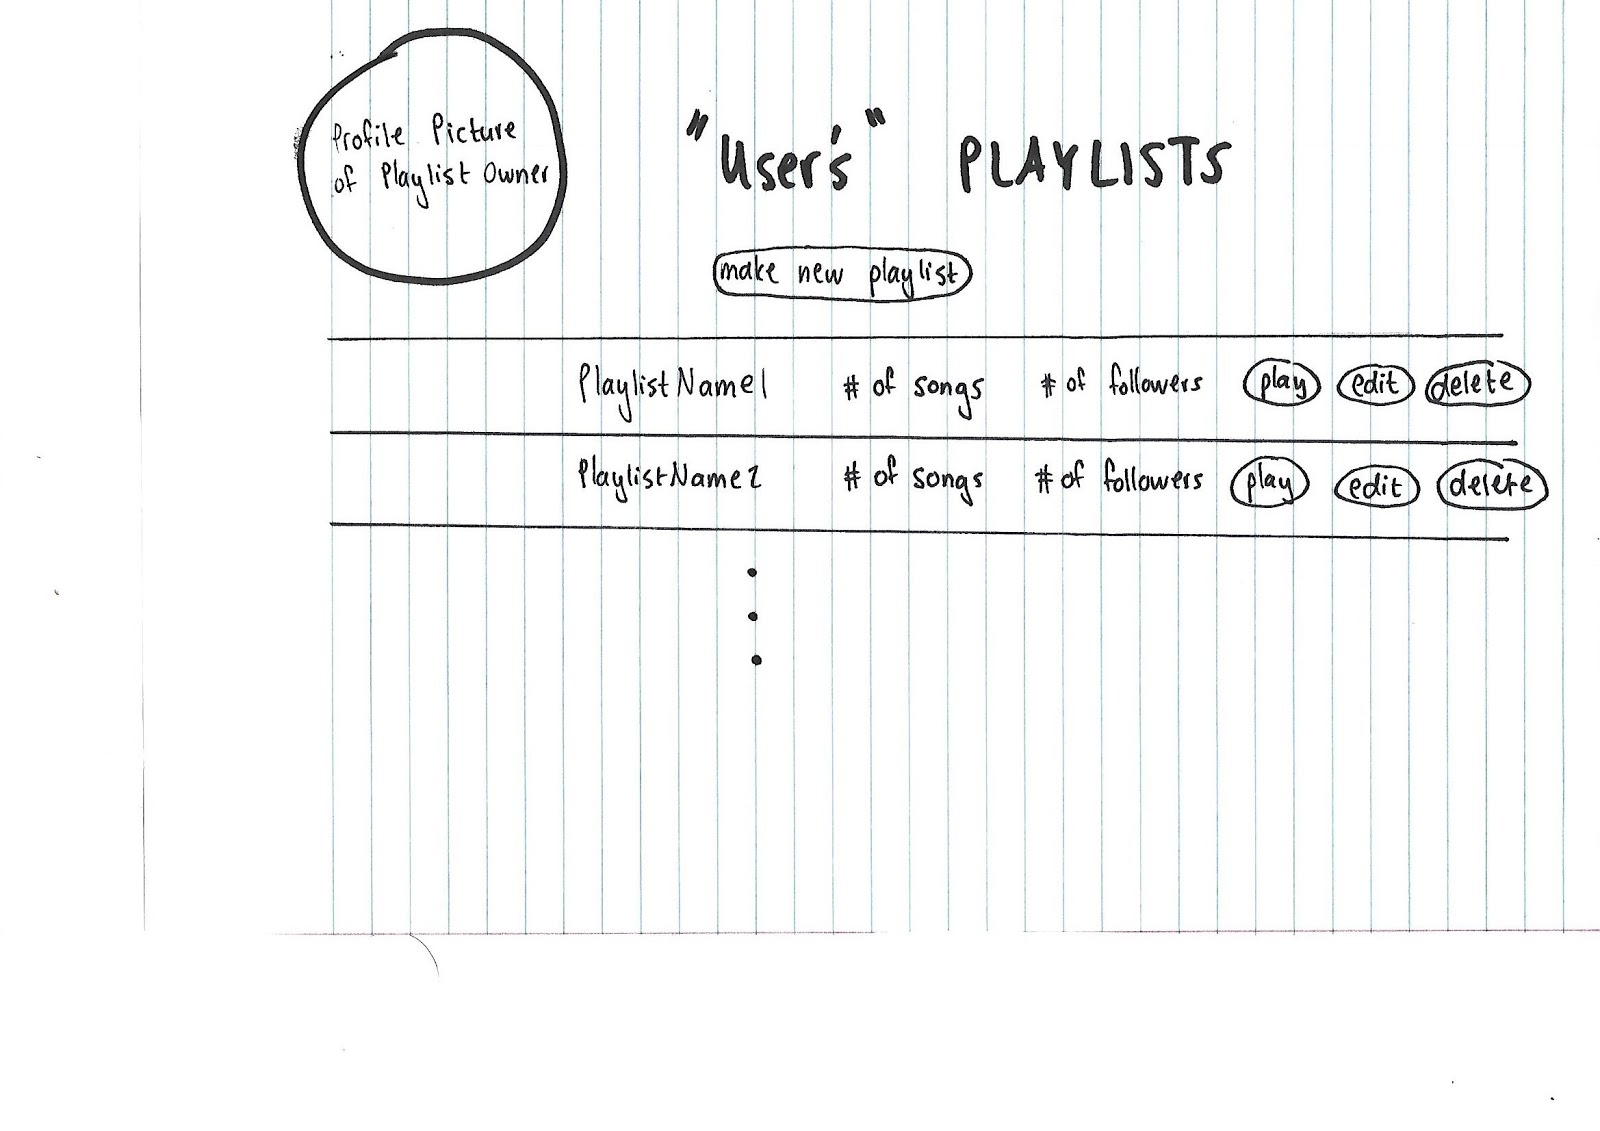 Profile Picture
of Playlist Owner
"User's" PLAYLISTS
make new playlist
PlaylistName1 # of songs # of followers play edit delete
PlaylistName2 # of songs # of followers play edit delete